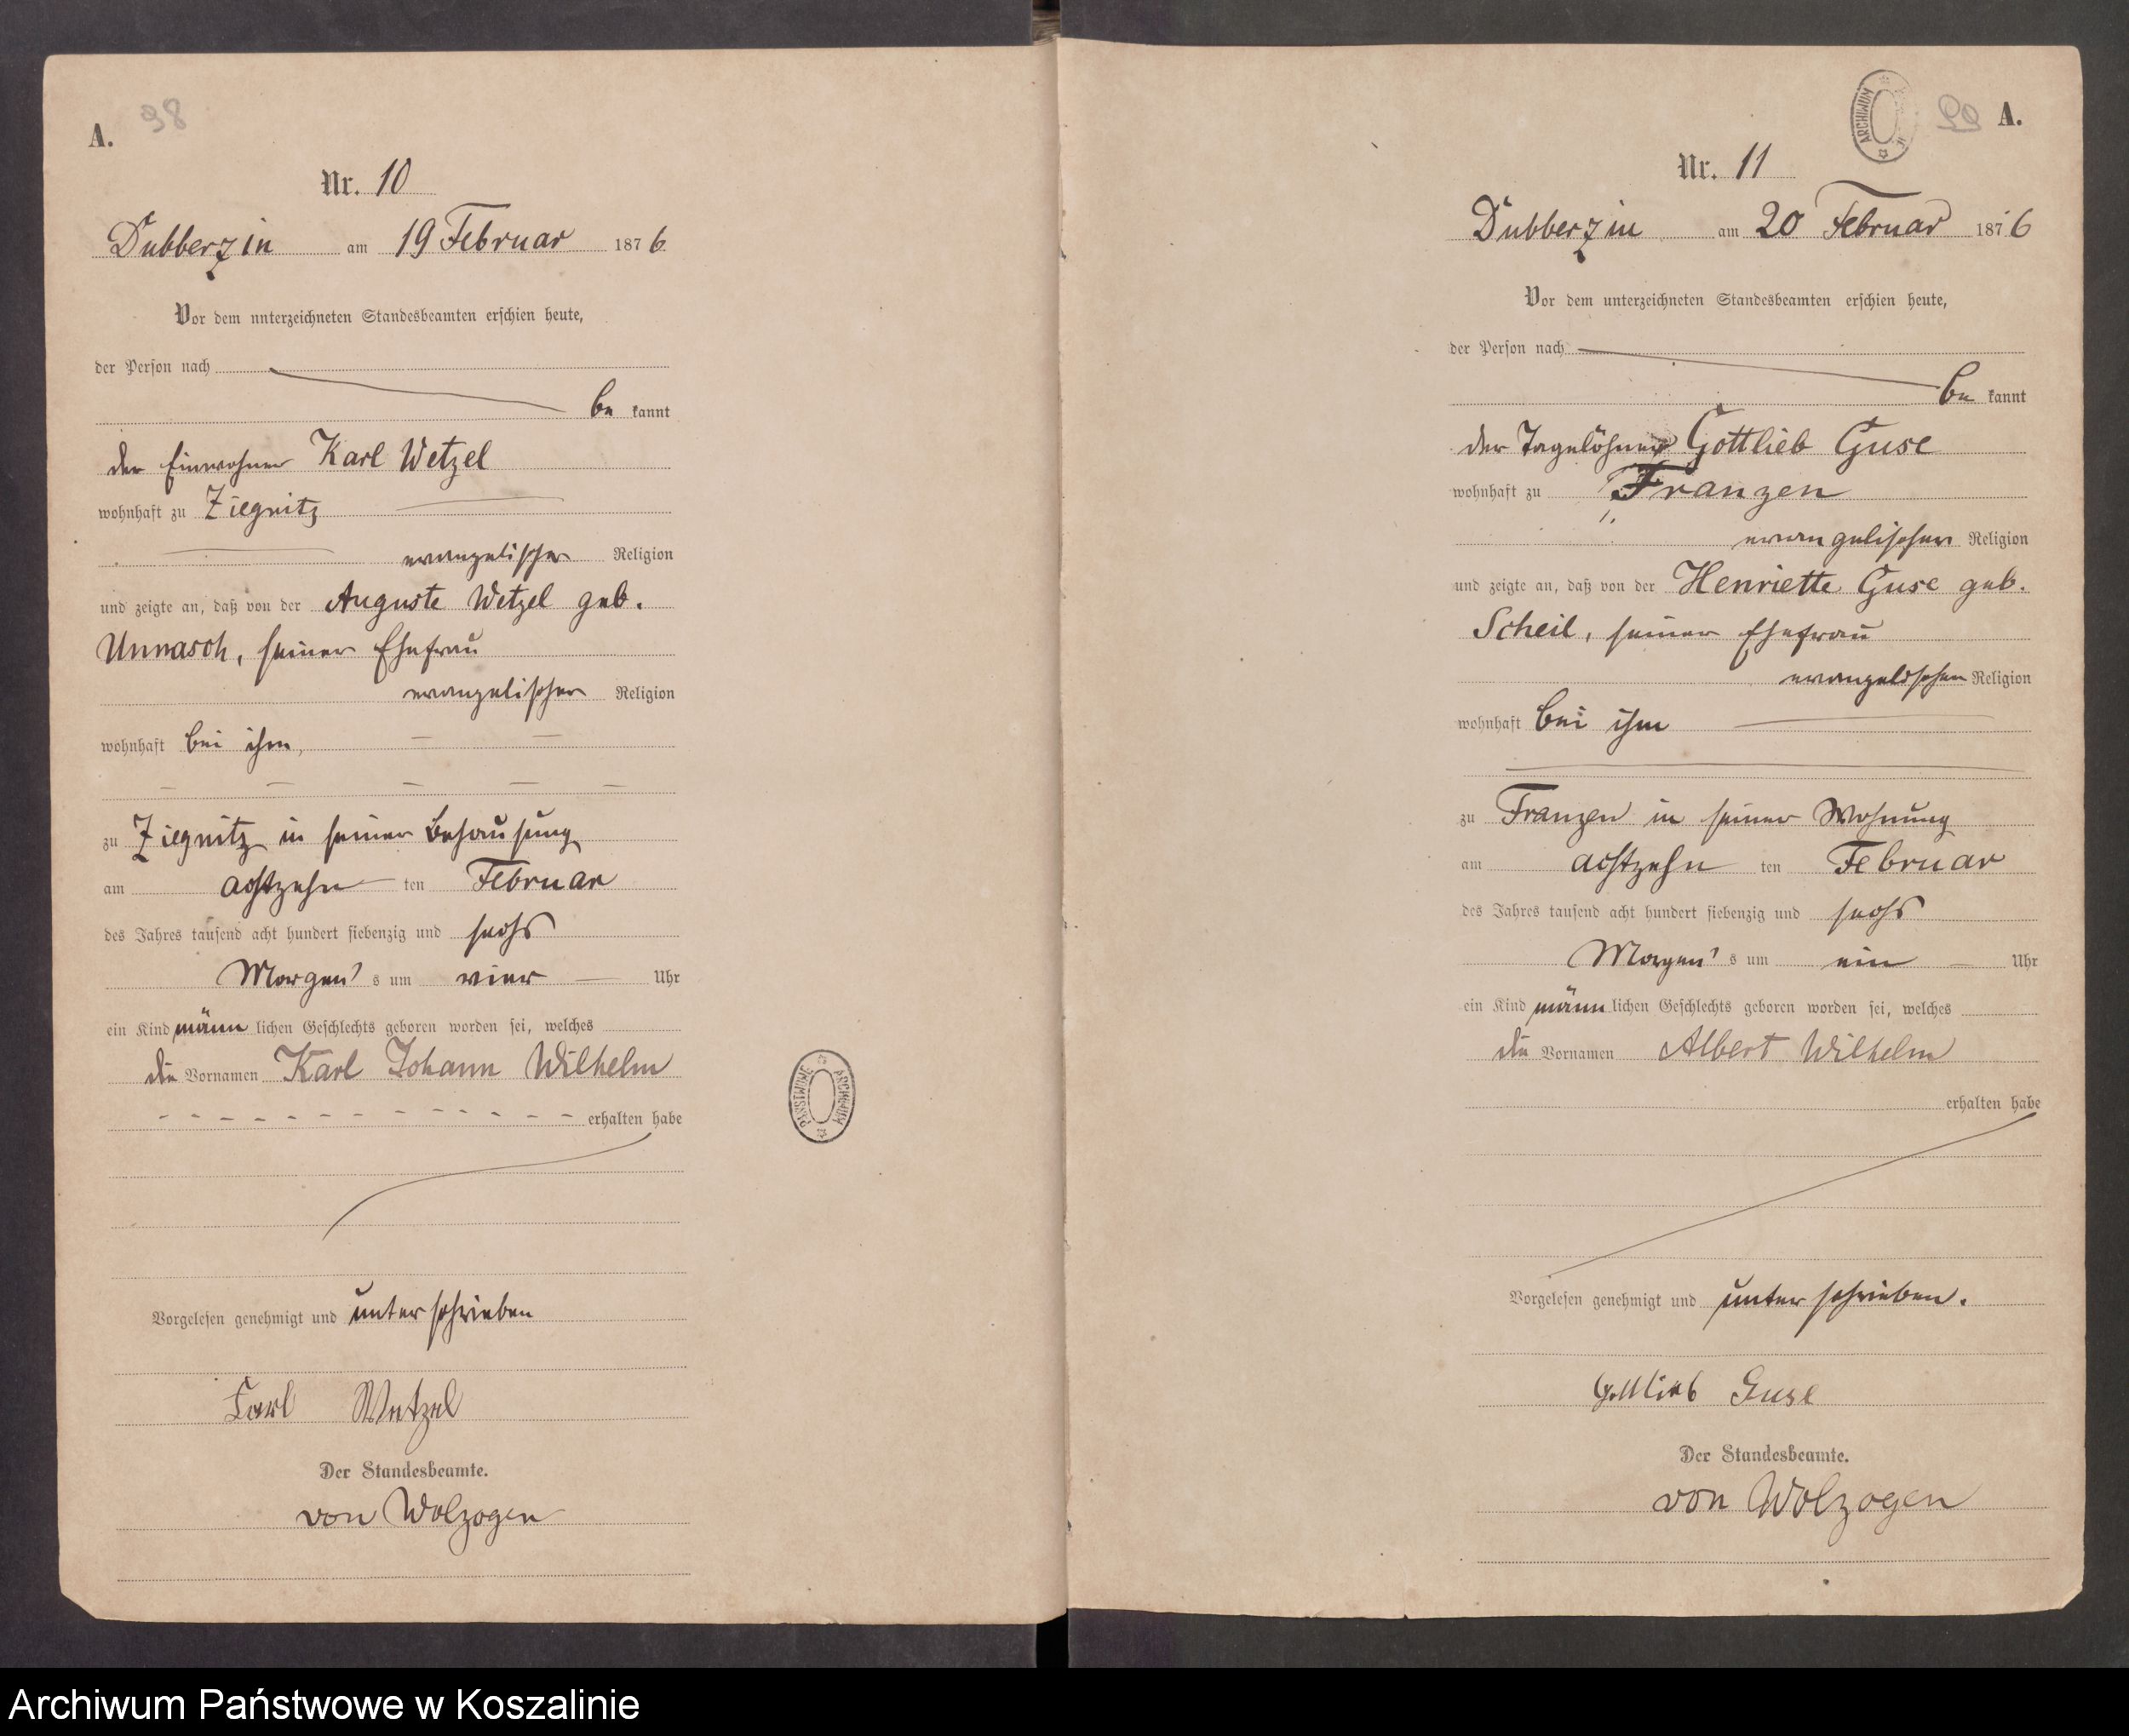 A. 98
Nr. 10
Dubberzin am 19 Februar 1876.
Vor dem unterzeichneten Standesbeamten erschien heute,
der Person nach
be kannt
der Einwohner Karl Wetzel
wohnhaft zu Ziegnitz
evangelischer Religion
und zeigte an, daß von der Auguste Wetzel geb.
Unnasch, seiner Ehefrau
evangelischer Religion
wohnhaft bei ihm,
zu Ziegnitz in seiner Behausung
am achtzehn ten Februar
des Jahres tausend acht hundert siebenzig und sechs
Morgen's um vier Uhr
ein Kind männ lichen Geschlechts geboren worden sei, welches
die Vornamen Karl Johann Wilhelm
erhalten habe
Vorgelesen genehmigt und unterschrieben
Carl Wetzel
Der Standesbeamte.
von Wolzogen
PAŃSTWOWE ARCHIWUM
ARCHIWUM
99 A.
Nr. 11
Dubberzin am 20 Februar 1876
Vor dem unterzeichneten Standesbeamten erschien heute,
der Person nach
be kannt
der Tagelöhner Gottlieb Guse
wohnhaft zu Franzen
evangelischer Religion
und zeigte an, daß von der Henriette Guse geb.
Scheil, seiner Ehefrau
evangelischen Religion
wohnhaft bei ihm
zu Franzen in seiner Wohnung
am achtzehn ten Februar
des Jahres tausend acht hundert siebenzig und sechs
Morgen's um ein Uhr
ein Kind männ lichen Geschlechts geboren worden sei, welches
die Vornamen Albert Wilhelm
erhalten habe
Vorgelesen genehmigt und unterschrieben.
Gottlieb Guse
Der Standesbeamte.
von Wolzogen
Archiwum Państwowe w Koszalinie